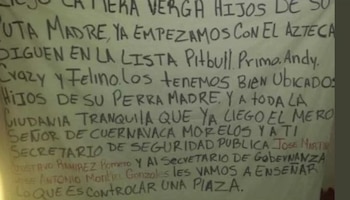 LLEGO LA MERA VERGA HIJOS DE SU
PUTA MADRE, YA EMPEZAMOS CON EL AZTECA
SIGUEN EN LA LISTA PITBULL. Primo. Andy.
Crazy y Felino. Los TENEMOS BIEN UBICADOS
HIJOS DE SU PERRA MADRE. Y A TODA LA
CIUDADANIA TRANQUILA QUE YA LLEGO EL MERO
SEÑOR DE CUERNAVACA MORELOS Y A TI
SECRETARIO DE SEGURIDAD PUBLICA JOSE
RAMIREZ Homero y Al SECRETARIO DE GOBERNANZA
ANTONIO Gonzales les VAMOS A ENSEÑAR
LO QUE ES CONTROLAR UNA PLAZA.